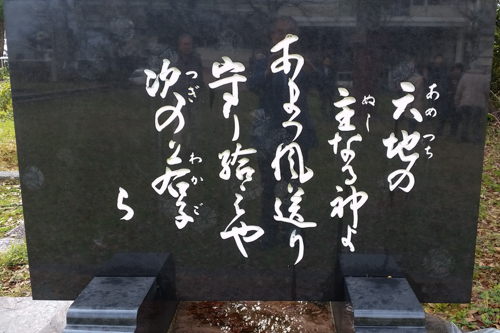 あめつち
天地の
ぬし
主なる神よ
あまつ風送り
守り給へや
つぎ わかご
次の若子
ら